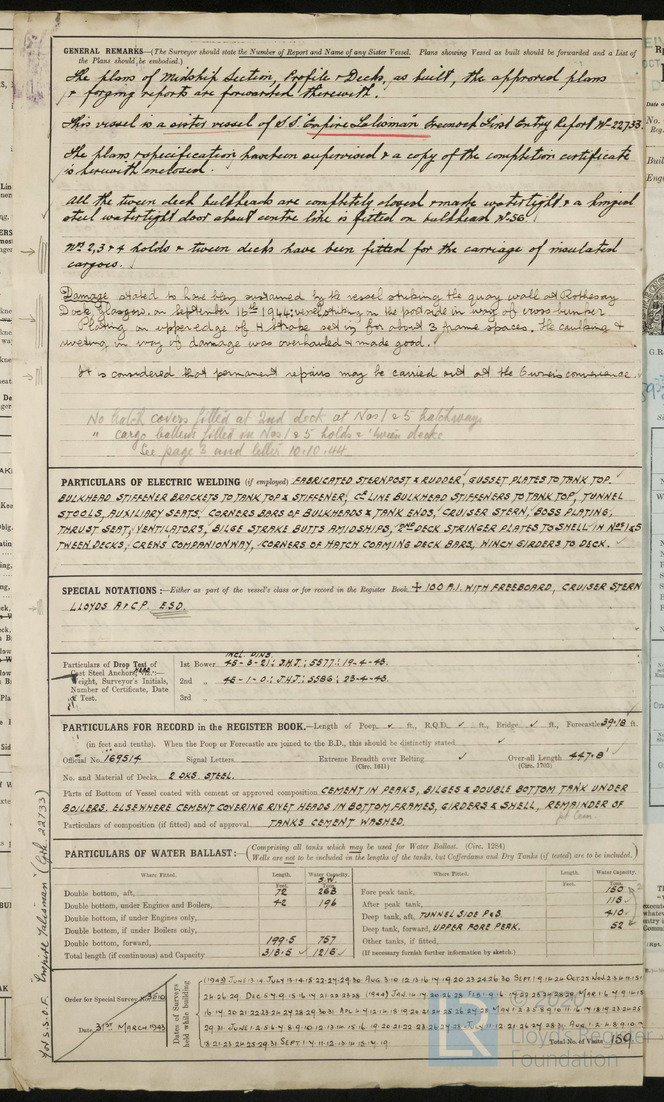 GENERAL REMARKS—(The Surveyor should state the Number of Report and Name of any Sister Vessel. Plans showing Vessel as built should be forwarded and a List of
the Plans should be embodied.)
The plans of Midship Section, Profile & Decks, as built, the approved plans
& forging reports are forwarded herewith.
This vessel is a sister vessel of S.S. Empire Talisman Greenock First Entry Report No 22733.
The plans & specification have been supervised & a copy of the completion certificate
is herewith enclosed.
All the tween deck bulkheads are completely closed & made watertight & a hinged
steel watertight door about centre line is fitted on bulkhead No 56.
Nos 2, 3 & 4 holds & tween decks have been fitted for the carriage of insulated
cargoes.
Damage stated to have been sustained by the vessel striking the quay wall at Rothesay
Dock, Glasgow. on September 16th 1944: vessel striking on the portside in way of cross bunker
Plating on upper edge of H strake set in for about 3 frame spaces. The caulking &
riveting in way of damage was overhauled & made good.
It is considered that permanent repairs may be carried out at the Owners convenience.
No hatch covers fitted at 2nd deck at Nos 1 & 5 hatchways
" cargo battens fitted in Nos 1 & 5 holds & 'tween decks
See page 3 and letter 10.10.44
PARTICULARS OF ELECTRIC WELDING (if employed) FABRICATED STERNPOST & RUDDER, GUSSET PLATES TO TANK TOP.
BULKHEAD STIFFENER BRACKETS TO TANK TOP & STIFFENER, C? LINE BULKHEAD STIFFENERS TO TANK TOP, TUNNEL
STOOLS, AUXILIARY SEATS, CORNERS BARS OF BULKHEADS & TANK ENDS, CRUISER STERN, BOSS PLATING,
THRUST SEAT, VENTILATORS, BILGE STRAKE BUTTS AMIDSHIPS, 2ND DECK STRINGER PLATES TO SHELL IN Nos 1 & 5
TWEEN DECKS, CREWS COMPANIONWAY, CORNERS OF HATCH COAMING DECK BARS, WINCH GIRDERS TO DECK.
SPECIAL NOTATIONS:—Either as part of the vessel's class or for record in the Register Book + 100 A.1. WITH FREEBOARD, CRUISER STERN
LLOYDS A & C P. E.S.D.
Particulars of Drop Test of
Cast Steel Anchors, viz.:—
Weight, Surveyor's Initials,
Number of Certificate, Date
of Test.
INCL. PINS.
1st Bower 45-3-21; J.H.J.; 5577; 19-4-43.
2nd „ 45-1-0; J.H.J.; 5586; 23-4-43.
3rd „
PARTICULARS FOR RECORD in the REGISTER BOOK.—Length of Poop, ft., R.Q.D. ft., Bridge ft., Forecastle 39.18 ft.
(in feet and tenths). When the Poop or Forecastle are joined to the B.D., this should be distinctly stated
Official No. 169514 Signal Letters Extreme Breadth over Belting Over-all Length 447.8'
(Circ. 1611) (Circ. 1703)
No. and Material of Decks 2 DKS. STEEL.
Parts of Bottom of Vessel coated with cement or approved composition CEMENT IN PEAKS, BILGES & DOUBLE BOTTOM TANK UNDER
BOILERS. ELSEWHERE CEMENT COVERING RIVET HEADS IN BOTTOM, FRAMES, GIRDERS & SHELL, REMAINDER OF
Particulars of composition (if fitted) and of approval TANKS CEMENT WASHED.
PARTICULARS OF WATER BALLAST:— (Comprising all tanks which may be used for Water Ballast. (Circ. 1284)
Wells are not to be included in the lengths of the tanks, but Cofferdams and Dry Tanks (if tested) are to be included.)
Where Fitted. Length. Water Capacity. Where Fitted. Length. Water Capacity.
Feet. S.W. Tons. Feet. Tons.
Double bottom, aft, 72 263 Fore peak tank, 150
Double bottom, under Engines and Boilers, 42 196 After peak tank, 115
Double bottom, if under Engines only, Deep tank, aft, TUNNEL SIDE P&S. 410
Double bottom, if under Boilers only, Deep tank, forward, UPPER FORE PEAK. 52
Double bottom, forward, 199.5 757 Other tanks, if fitted,
Total length (if continuous) and Capacity 313.5 1216 (If necessary furnish further information by sketch.)
Order for Special Survey No. 3510
Date 31ST MARCH 1943
Dates of Surveys
held while building
Total No. of Visits 159
for S.S.O.F. "Empire Talisman" (Grk 22733)
© 2020
Lloyd's Register
Foundation